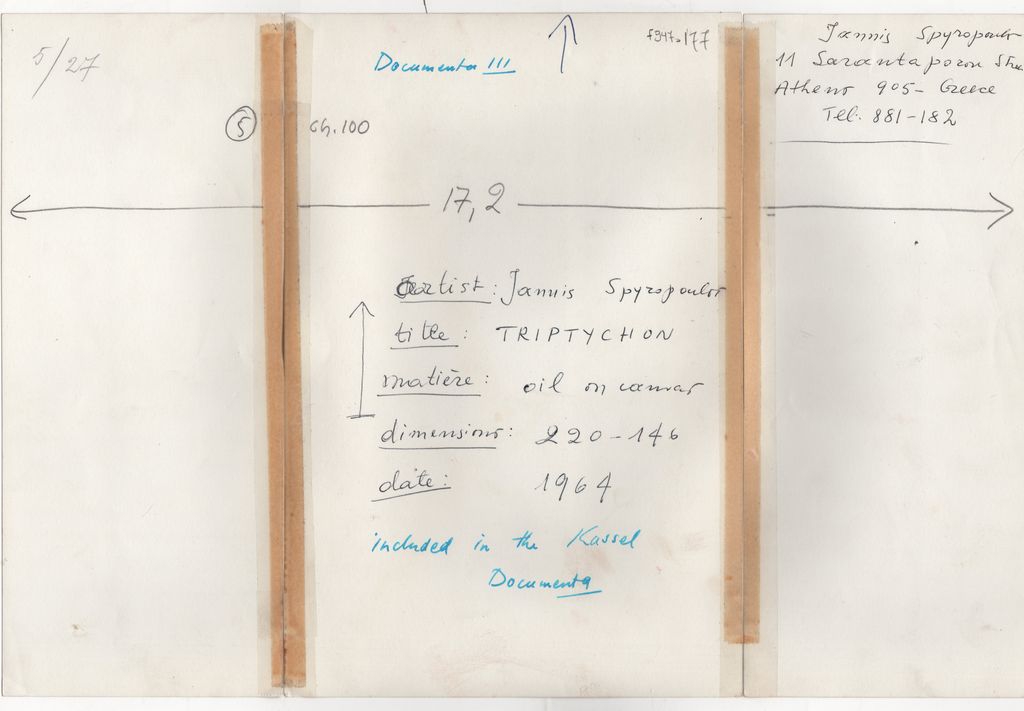 5/27
Documenta III
f347.177
Jannis Spyropoulos
11 Sarantaporon Stre
Athens 905 - Greece
Tel. 881-182
5
Gh.100
17,2
artist: Jannis Spyropoulos
title: TRIPTYCHON
matière: oil on canvas
dimensions: 220-146
date: 1964
included in the Kassel
Documenta